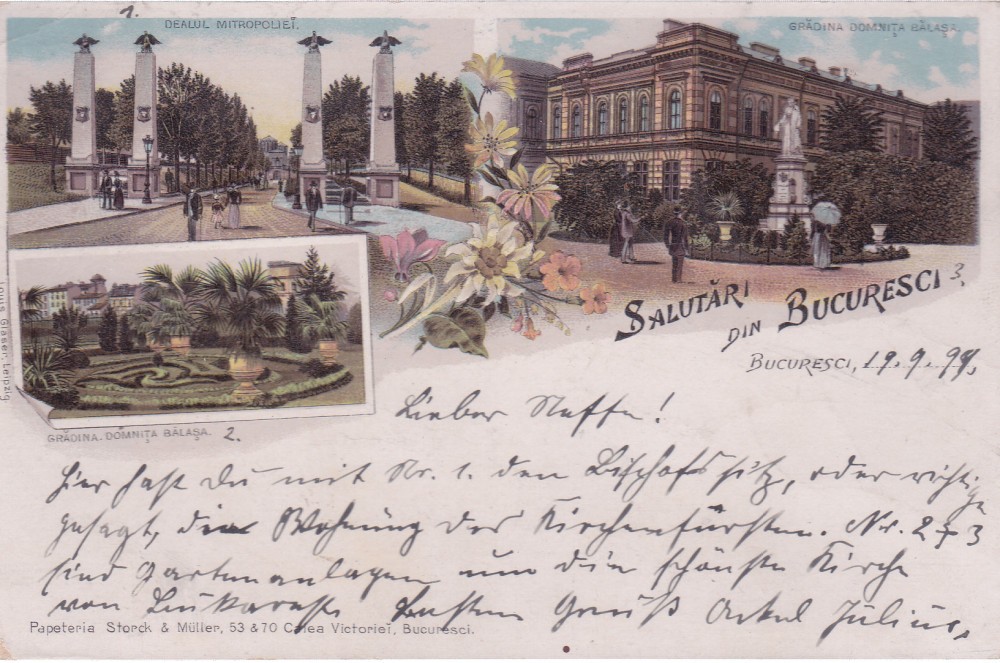 1.
DEALUL MITROPOLIEĬ.
GRĂDINA DOMNIȚA BĂLAȘA.
SALUTĂRI
DIN BUCURESCI 3.
BUCURESCI, 19.9.99.
Louis Glaser, Leipzig
GRĂDINA DOMNIȚA BĂLAȘA. 2.
Lieber Neffe!
Hier hast Du mit Nr. 1. den Bischofssitz, oder richtig
gesagt, die Wohnung des Kirchenfürsten. Nr. 2 & 3
sind Gartenanlagen um die schönste Kirche
von Bukarest. Besten Gruß Onkel Julius.
Papeteria Storck & Müller, 53 & 70 Calea Victorieĭ, Bucuresci.